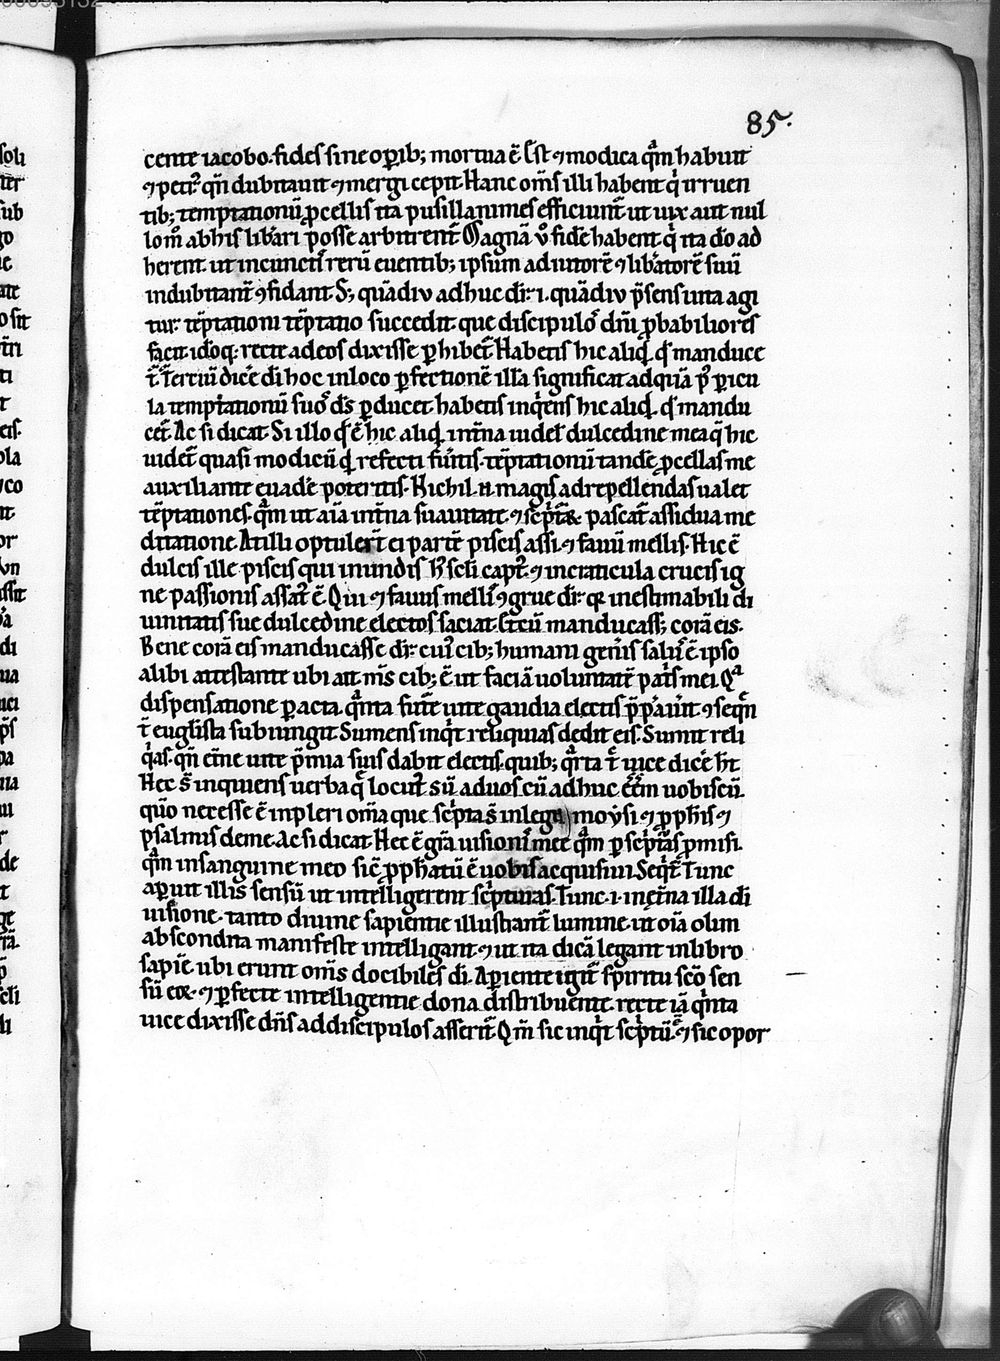 85.
cente iacobo. fides sine opib; mortua ē. Est ⁊ modica qm̄ habuit
⁊ petr᷒ qn̄ dubitauit ⁊ mergi cepit. Hanc om̄s illi habent qi irruen
tib; temptationū pcellis ita pusillanimes efficiunt᷑ ut uix aut nul
lom̊ ab his libari posse arbitrent᷑. Magnā ů fidē habent qi ita dō ad
herent. ut in cunctis rerū euentib; ipsum adiutorē ⁊ libatorē suū
indubitant᷑ ꝯfidant. S; quādiu adhuc dr̄. i. quādiu p̄sens uita agi
tur. tēptationi tēptatio succedit. que discipulos dn̄i pbabiliores
facit. idoq; recte ad eos dixisse phibet᷑. Habetis hic aliqd qd manduce
t᷑. Terciū dicē di hoc in loco pfectionē illā significat ad quā p᷒ picu
la temptationū suos ds pducet. habetis inqiens hic aliqd qd mandu
cet᷑. Ac si dicat. Si illo qd ē hic aliqd int̄na uidel᷑ dulcedine mea q̄ hic
uidet᷑ quasi modicū qd refecti fuitis. tēptationū tandē pcellas me
auxiliante euadē poteritis. Nichil .n. magis ad repellendas ualet
tēptationes. qm̄ ut aīa int̄na suauitate ⁊ scpt᷑& pascat᷑ assidua me
ditatione. At illi optulert̄ ei partē piscis assi. ⁊ fauū mellis. Hic ē
dulcis ille piscis qui in undis hi᷒ scli capt᷒. ⁊ in craticula crucis ig
ne passionis assat᷒ ē. Qui ⁊ fauus mellis ꝯgrue dr̄. qr inestimabili di
uinitatis sue dulcedine electos saciat. Et cū manducass; corā eis.
Bene corā eis manducasse dr̄. cui᷒ cib; humani gen̄is salus ē ipso
alibi attestante ubi ait. m̄s cib; ē ut faciā uoluntatē pat̄s mei. Qa
dispensatione pacta qnta fut᷑e uite gaudia electis p̄parauit. ⁊ seqn̄
t᷑ euglista subiungit. Sumens inqt reliquias dedit eis. Sumit reli
qias. qn̄ et̄ne uite p̄mia suis dabit electis. quib; qrta t᷑ uice dicē ht̄.
Hec s̄ inquiens uerba q̄ locut᷒ sū ad uos cū adhuc eēm uobiscū.
qm̄o necesse ē inpleri om̄ia que scpta s̄ in lege moysi ⁊ pphis ⁊
psalmis de me. Ac si dicat. Hec ē gr̄a uisionis mee qm̄ p scpturas pmisi.
qm̄ in sanguine meo sic pphatū ē uobis acquisiui. Seqt᷑. Tunc
aperuit illis sensū ut intelligerent scpturas. Tunc .i. in et̄na illa di
uisione. tanto diuine sapientie illustrant᷑ lumine. ut oīa olim
abscondita manifeste intelligant. ⁊ ut ita dicā legant in libro
sapiē. ubi erunt om̄s docibiles di. Aperiente igit᷑ spiritu scō sen
sū eoꝝ. ⁊ pfecte intelligentie dona distribuente. recte iā qnta
uice dixisse dn̄s ad discipulos asserit᷑. Qm̄ sic inqt scptū ē ⁊ sic opor